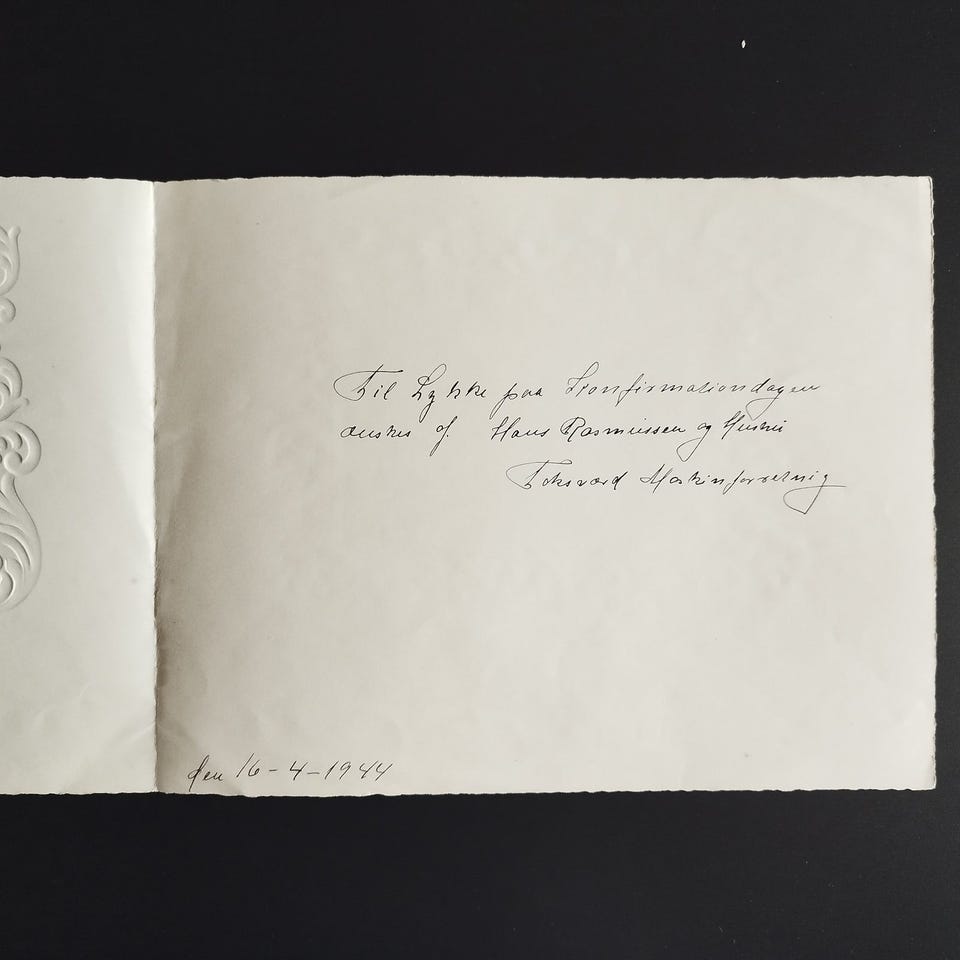 Til Lykke paa Konfirmationdagen
ønskes af Hans Rasmussen og Hustru
Toksværd Maskinforretnig
den 16-4-1944